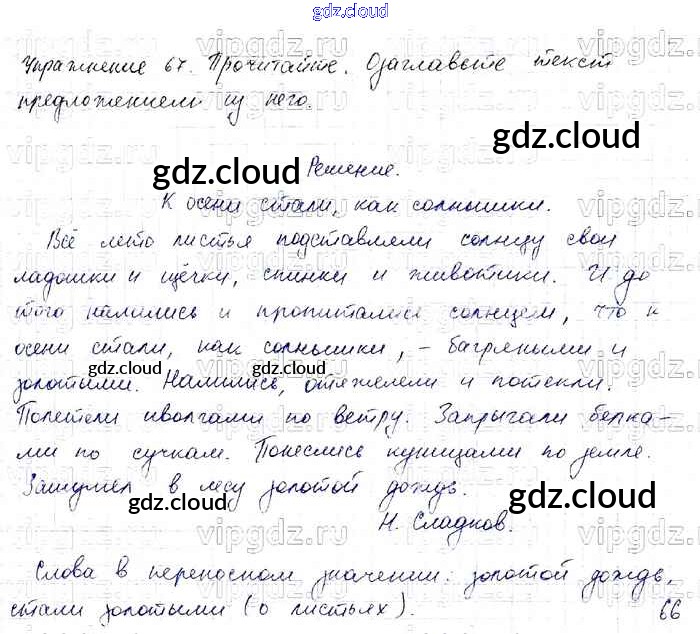 gdz.cloud
Упражнение 67. Прочитайте. Озаглавьте текст
предложением из него.
gdz.cloud
gdz.cloud
Решение.
К осени стали, как солнышки.
Всё лето листья подставляли солнцу свои
ладошки и щёчки, спинки и животики. И до
того налились и пропитались солнцем, что к
осени стали, как солнышки, - багряными и
золотыми. Налились, отяжелели и потекли.
gdz.cloud
gdz.cloud
Полетели иволгами по ветру. Запрыгали белка-
ми по сучкам. Понеслись куницами по земле.
Зашумел в лесу золотой дождь.
gdz.cloud
gdz.cloud
Н. Сладков.
Слова в переносном значении: золотой дождь,
стали золотыми (о листьях).
66